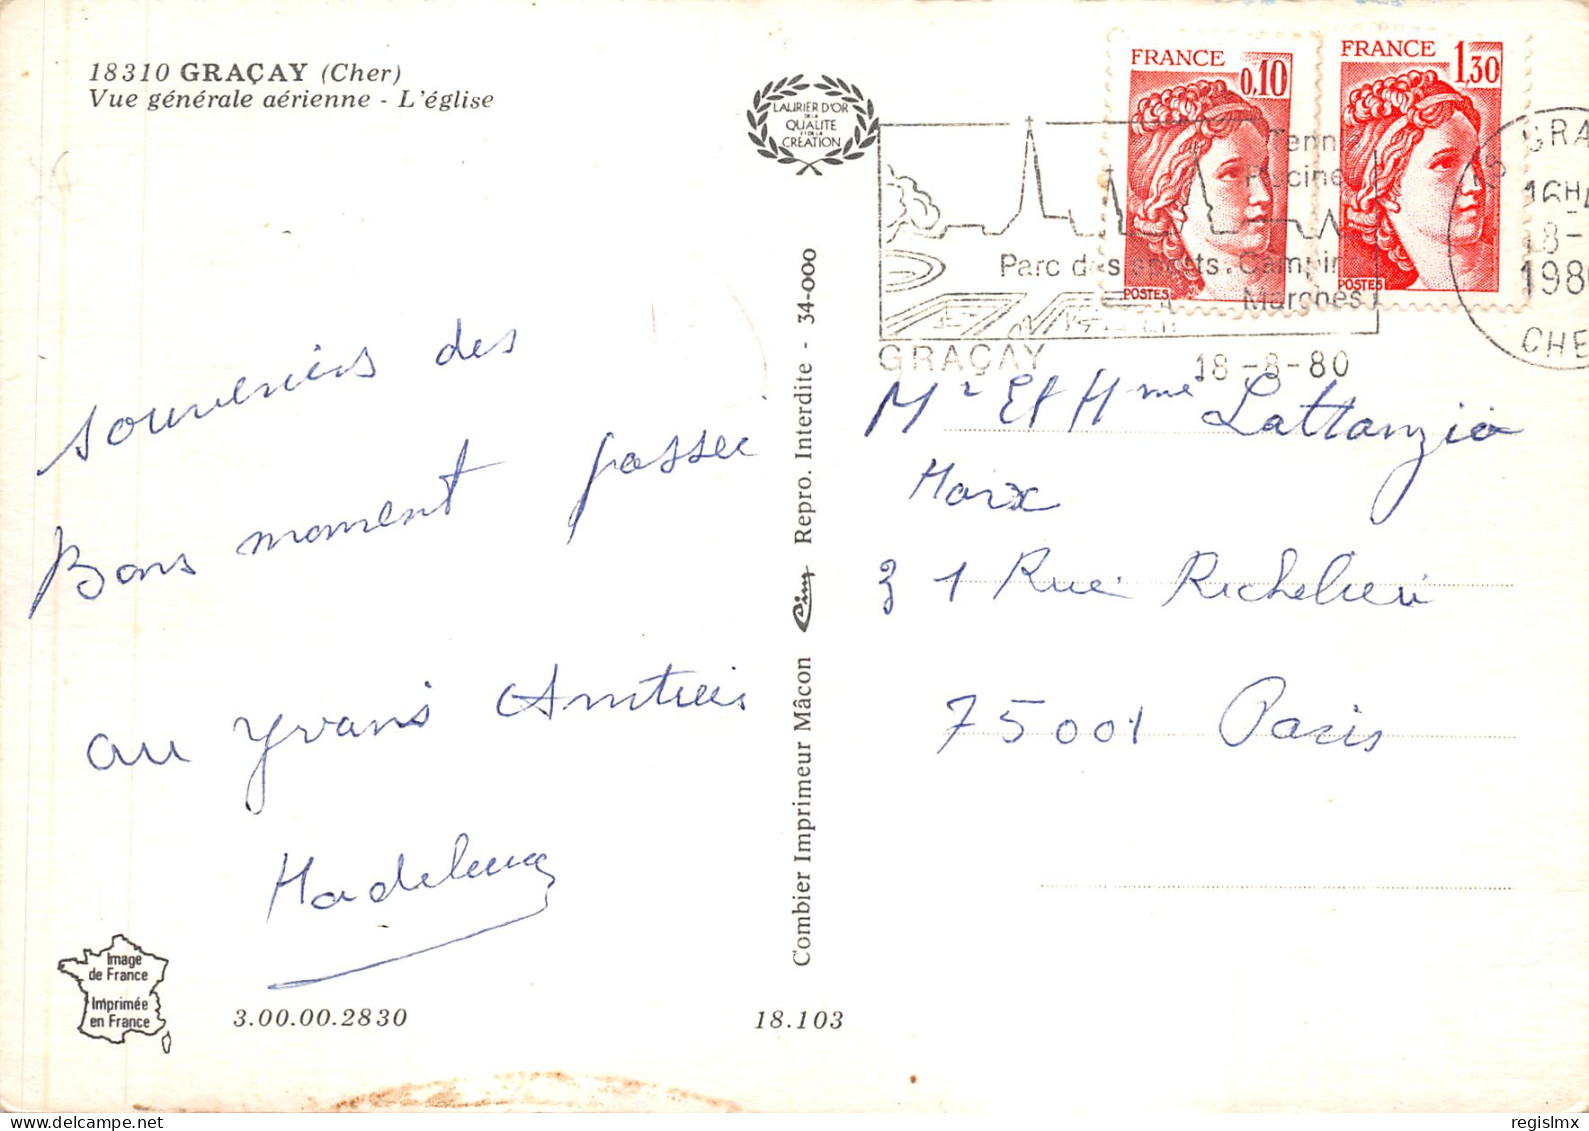 18310 GRAÇAY (Cher)
Vue générale aérienne - L'église
LAURIER D'OR
DE LA
QUALITE
ET DE LA
CRÉATION
FRANCE
0,10
POSTES
FRANCE
1,30
POSTES
Tenni
Piscine
Parc des sports. Campin
Marches
GRAÇAY
18-8-80
GRA
16H
18-
198
CHE
souvenirs des
Bons moment passei
au
Madeleine
Mr Et Mme Lattanzio
Marx
31 Rue Richelieu
75001 Paris
Combier Imprimeur Mâcon Cim Repro. Interdite - 34-000
Image
de France
Imprimée
en France
3.00.00.2830
18.103
regislmx